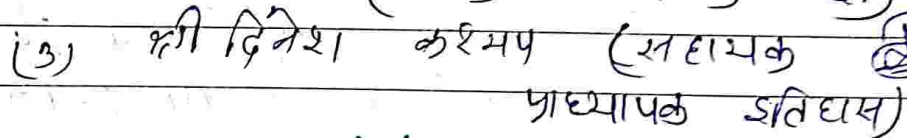 (3) श्री दिनेश कश्यप (सहायक
प्राध्यापक इतिहास)